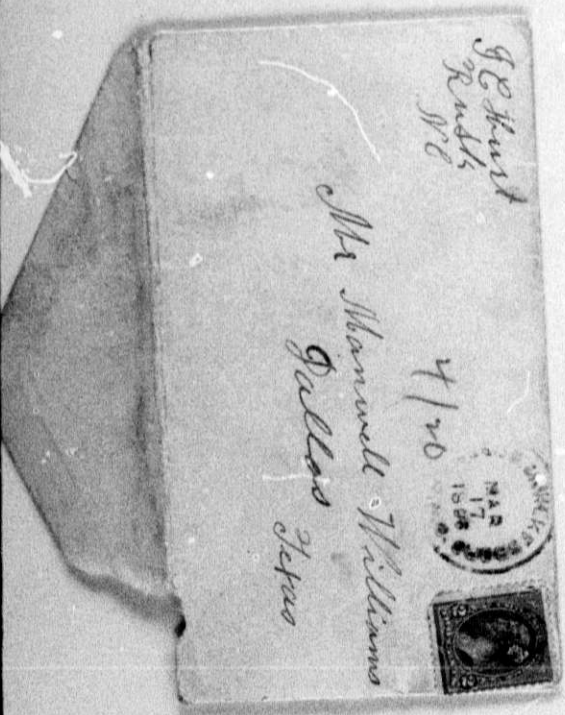 Rusk
NC
4/20
MAR
17
Mr Manuell Williams
Dallas Texas